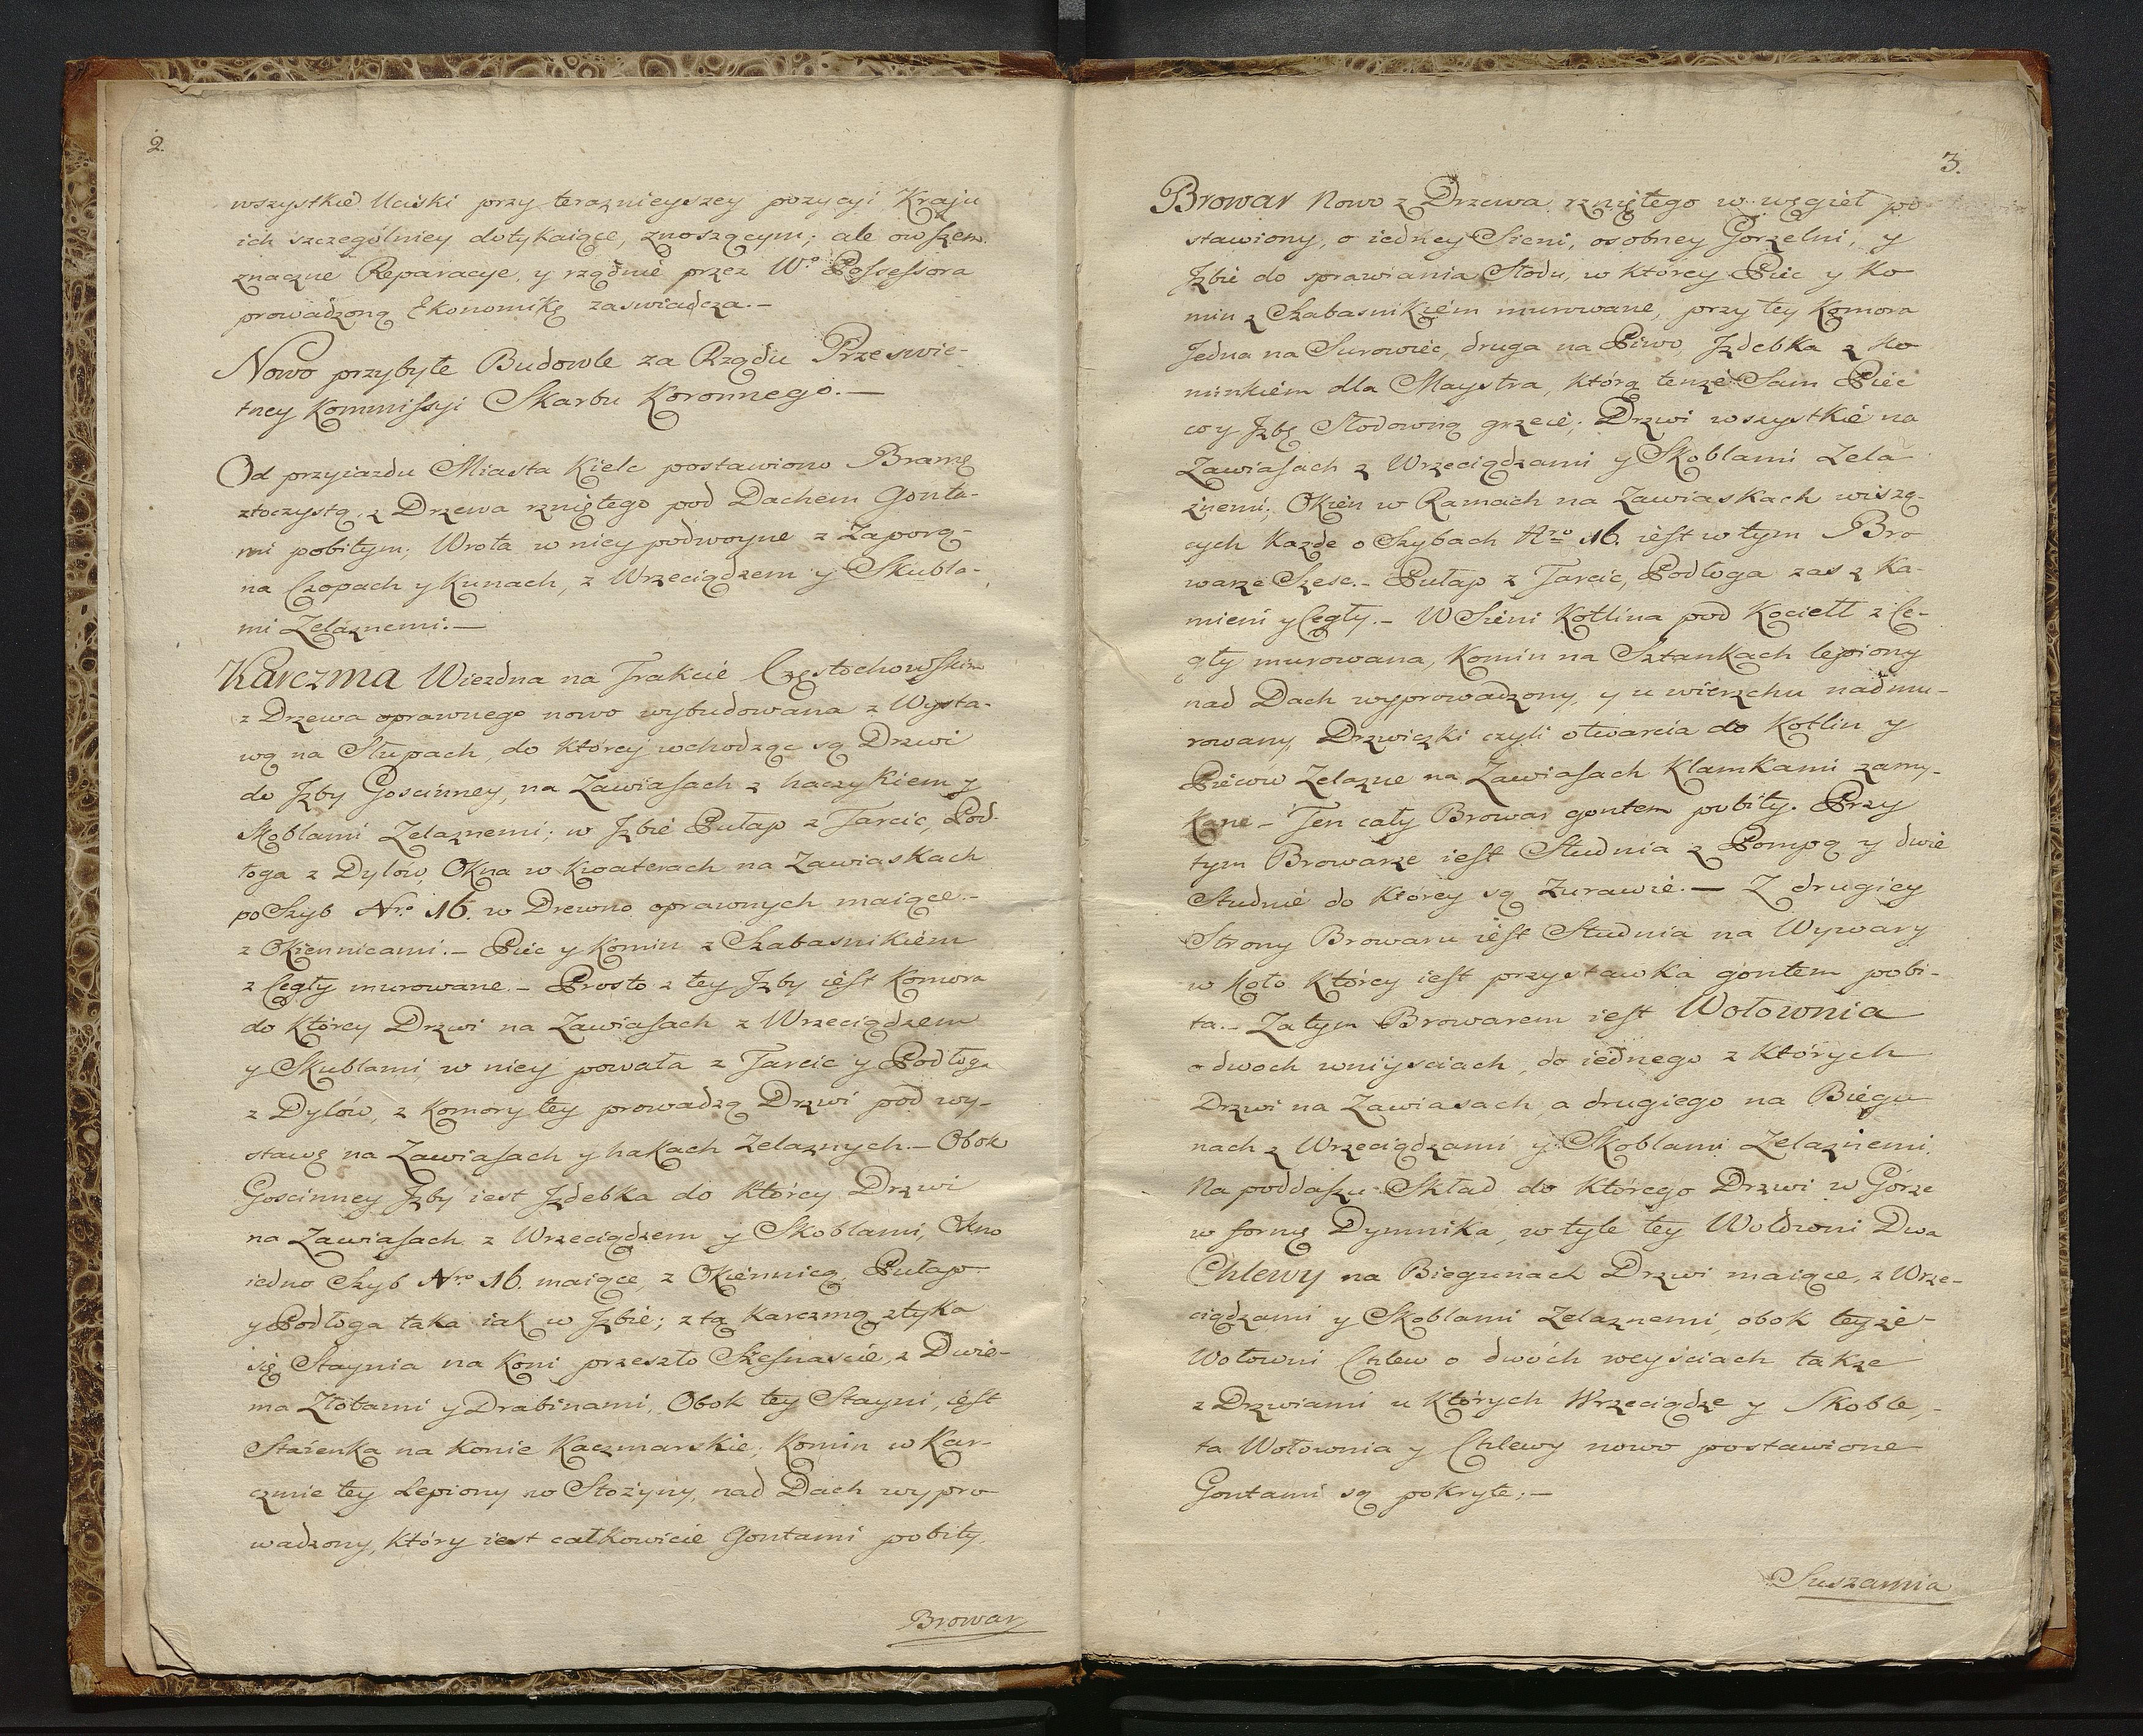 2.
wszystkie Uciski przy teraznieyszey pozycyi Kraju
ich szczegolniey dotykaiące, znoszącym; ale owszem
znaczne Reparacye, y rządnie przez Wo Possessora
prowadzoną Ekonomikę zaswiadcza.—
Nowo przybyłe Budowle za Rządu Przeswie-
tney Kommissyi Skarbu Koronnego.—
Od przyiazdu Miasta Kielc postawiono Bramę
ztoczystą, z Drzewa rzniętego pod Dachem Gonta-
mi pobitym; Wrota w niey podwoyne z Zaporą-
na Czopach y Kunach, z Wrzeciądzem y Skubla-
mi Zelaznemi.—
Karczma Wiezdna na Trakcie Częstochowskim
z Drzewa oprawnego nowo wybudowana z Wysta-
wą na Słupach, do którey wchodząc są Drzwi
do Jzby Goscinney, na Zawiasach z haczykiem y
Skoblami Zelaznemi; w Jzbie Pułap z Tarcic, Pod-
łoga z Dylow, Okna w Kwaterach na Zawiaskach
po Szyb Nro 16. w Drewno oprawnych maiące.-
z Okiennicami.- Piec y Komin z Szabasnikiem
z Cegły murowane.- Prosto z tey Jzby iest Komora
do którey Drzwi na Zawiasach z Wrzeciądzem
y Skublami, w niey powała z Tarcic y Podłoga
z Dylów, z Komory tey prowadzą Drzwi pod wy-
stawę na Zawiasach y hakach Zelaznych.- Obok
Goscinney Jzby iest Jzdebka do którey Drzwi
na Zawiasach z Wrzeciądzem y Skoblami, Okno
iedno Szyb Nro 16. maiące, z Okiennicą, Pułap
y Podłoga taka iak w Jzbie; z tą Karczmą ztyka
się Staynia na Koni przeszło Szesnascie, z Dwie-
ma Złobami y Drabinami, Obok tey Stayni, iest
Staienka na Konie Kaczmarskie; Komin w Kar-
czmie tey Lepiony w Stożyny, nad Dach wypro
wadzony, który iest całkowicie Gontami pobity.
Browar
3.
Browar Nowo z Drzewa rzniętego w węgieł po
stawiony, o iedney Sieni, osobney Gorzelni, y
Jzbie do sprawiania Słodu, w którey Piec y Ko
min z Szabasnikiem murowane, przy tey Komora
Jedna na Surowiec, druga na Piwo, Jzdebka z Ko
minkiem dla Maystra, którą tenze Sam Piec
co y Jzbę Słodowną grzeie; Drzwi wszystkie na
Zawiasach z Wrzeciądzami y Skoblami Zela
znemi; Okien w Ramach na Zawiaskach wiszą-
cych Kazde o Szybach Nro 16. iest w tym Bro
warze Szesc.- Pułap z Tarcic, Podłoga zas z Ka-
mieni y Cegły.- W Sieni Kotlina pod Kocieł z Ce-
gły murowana, Komin na Sztankach lepiony
nad Dach wyprowadzony, y u wierzchu nadmu-
rowany, Drzwiczki czyli otwarcia do Kotlin y
Pieców Zelazne na Zawiasach Klamkami zamy-
Kane- Ten cały Browar gontem pobity. Przy
tym Browarze iest Studnia z Pompą y dwie
Studnie do Którey są Zurawie.— Z drugiey
Strony Browaru iest Studnia na Wywary
w koło Którey iest przystawka gontem pobi-
ta.- Za tym Browarem iest Wołownia
o dwoch wniysciach, do iednego z Których
Drzwi na Zawiasach, a drugiego na Biegu
nach z Wrzeciądzami y Skoblami Zelaznemi.
Na poddaszu Skład do Którego Drzwi w Górze
w formę Dymnika, w tyle tey Wołowni Dwa
Chlewy na Biegunach Drzwi maiące, z Wrze-
ciądzami y Skoblami Zelaznemi, obok teyze-
Wołowni Chlew o dwóch weyściach takze
z Drzwiami u Których Wrzeciądze y Skoble,-
ta Wołownia y Chlewy nowo postawione
Gontami są pokryte;—
Suszarnia